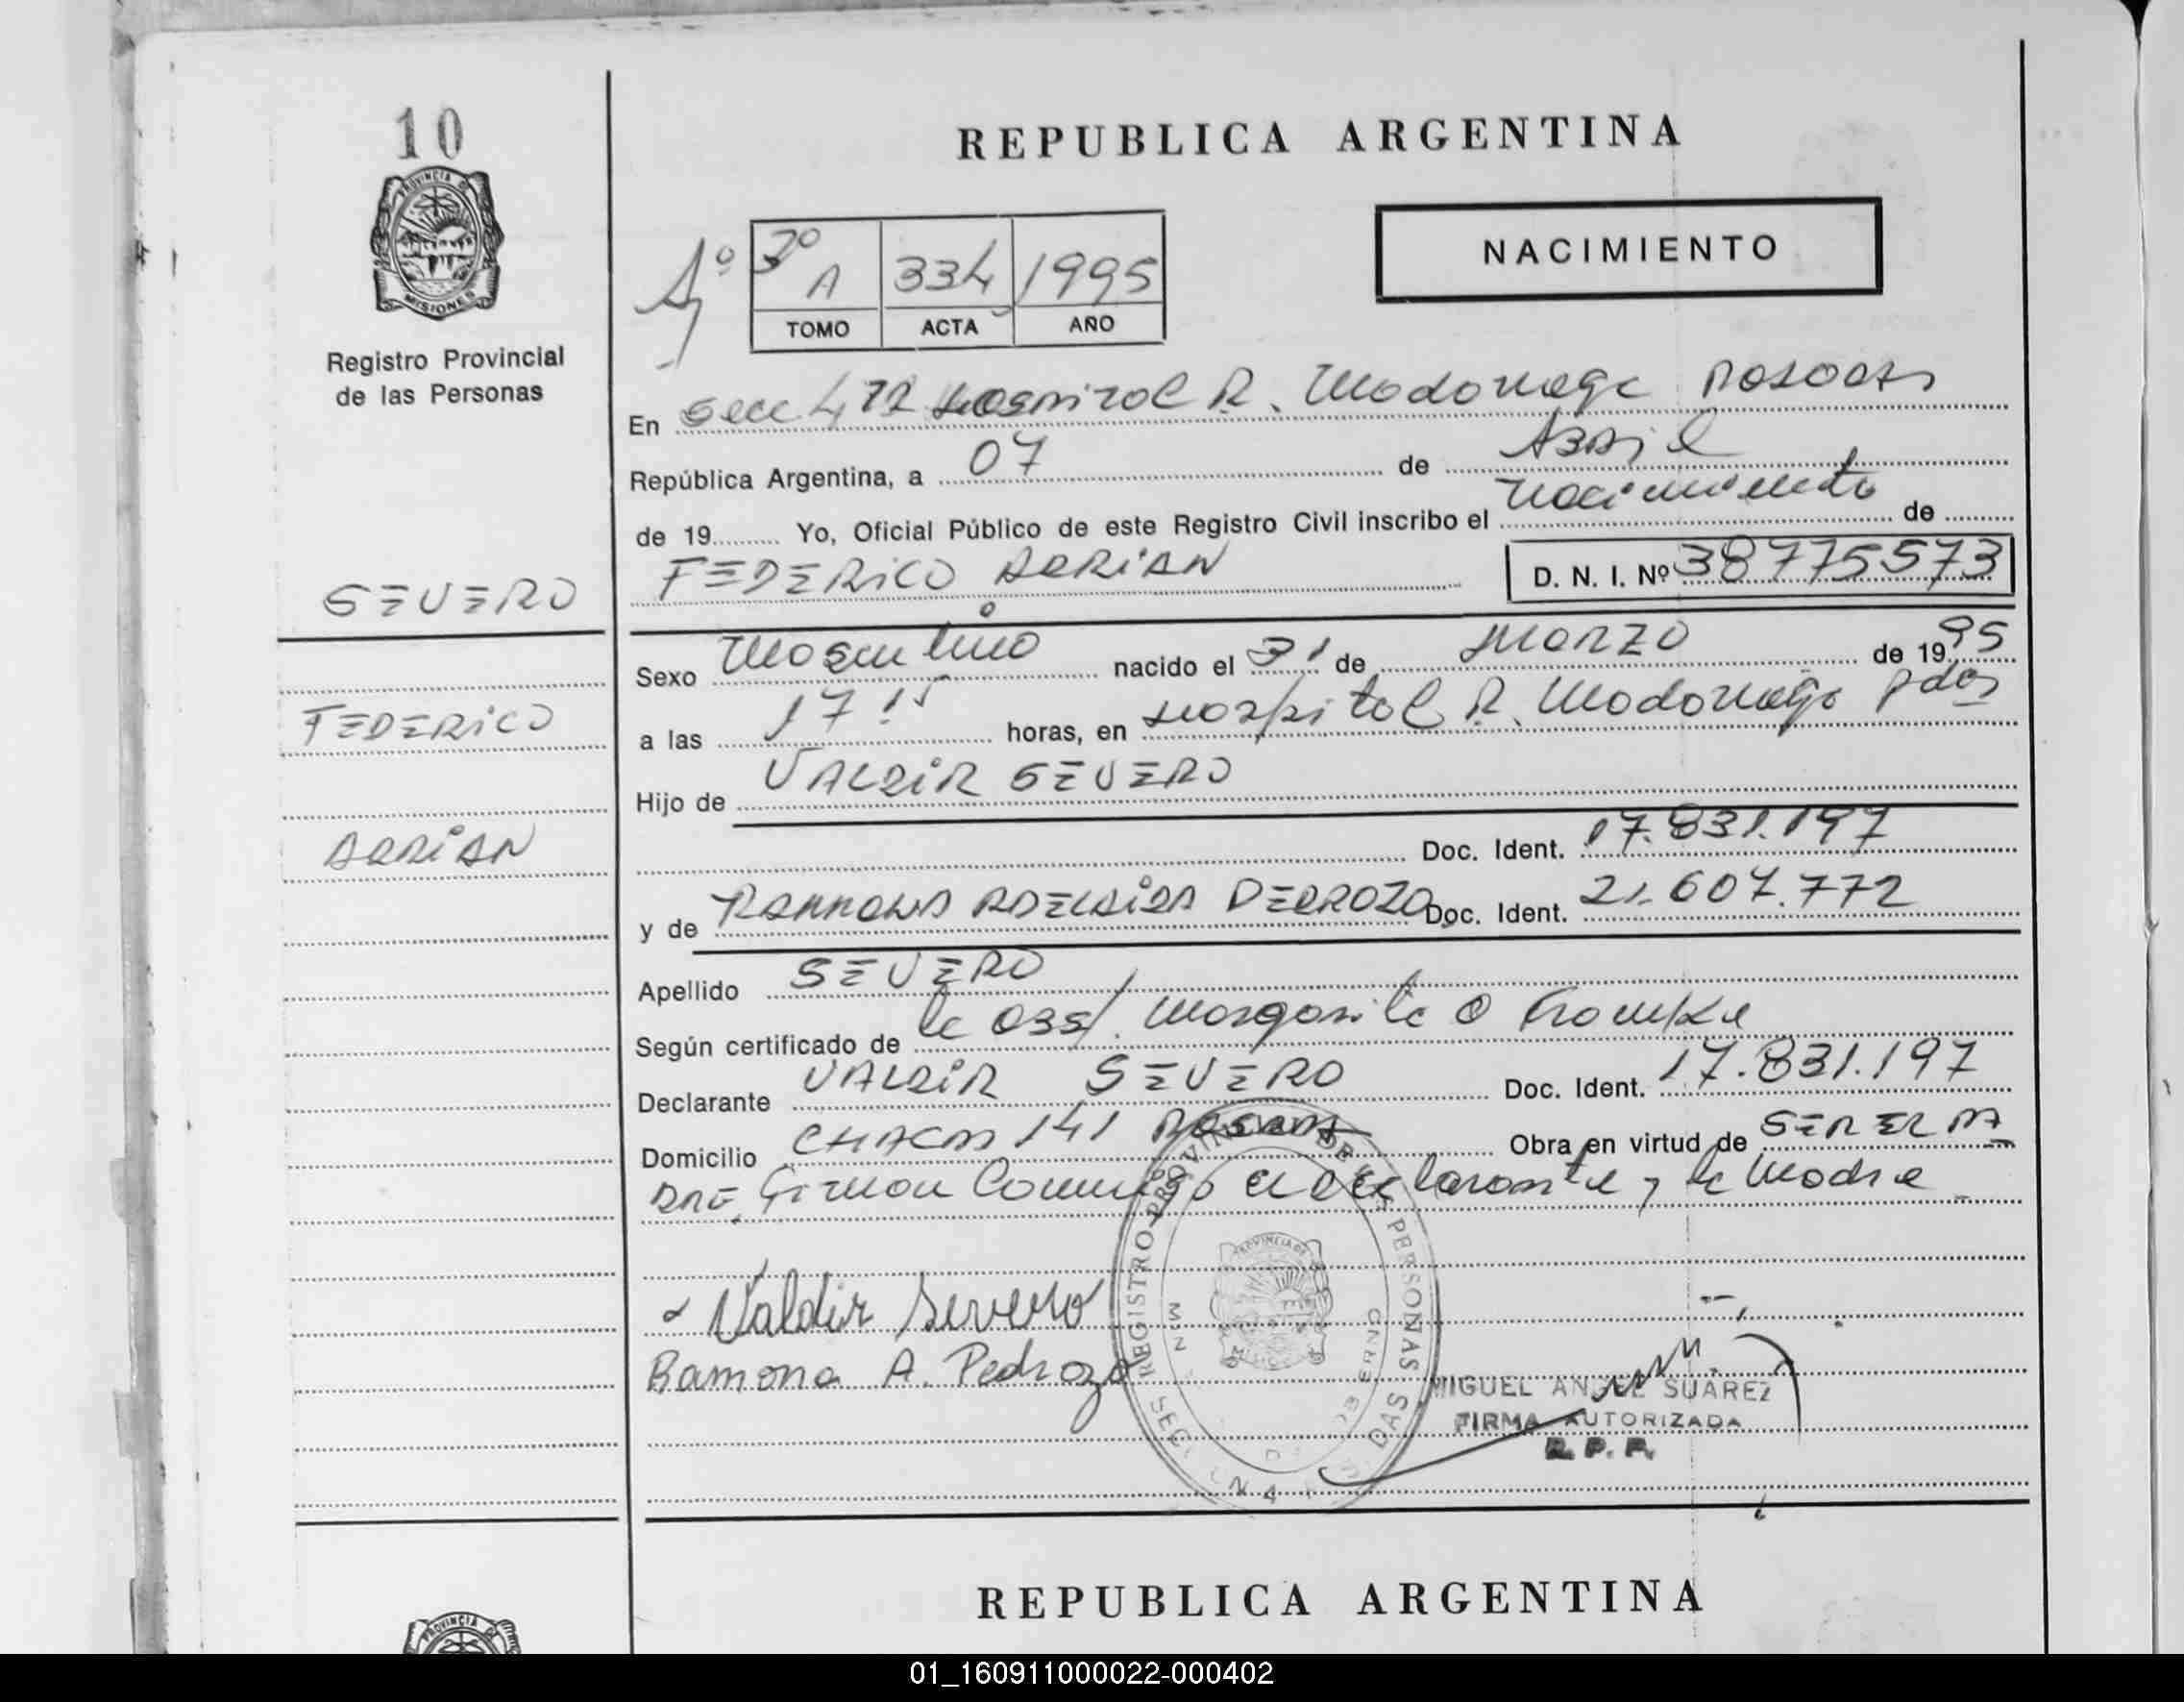 10
PROVINCIA DE
MISIONES
Registro Provincial
de las Personas
SEVERO
FEDERICO
ADRIAN
REPUBLICA ARGENTINA
NACIMIENTO
3º A 334 1995
TOMO ACTA AÑO
En Secc 4 Hospital R. Madariaga Posadas
República Argentina, a 07 de Abril
de 19 Yo, Oficial Público de este Registro Civil inscribo el nacimiento de
FEDERICO ADRIAN D. N. I. Nº 38775573
Sexo Masculino nacido el 31 de Marzo de 1995
a las 17.15 horas, en Hospital R. Madariaga Pdas
Hijo de VALDIR SEVERO
Doc. Ident. 17.831.197
y de RAMONA ADELAIDA PEDROZO Doc. Ident. 21.607.772
Apellido SEVERO
Según certificado de la Obst. Margarita
Declarante VALDIR SEVERO Doc. Ident. 17.831.197
Domicilio CHACO 141 Posadas Obra en virtud de SER EL PA
DRE. Firman Conmigo el declarante y la Madre
Valdir Severo
Ramona A. Pedrozo
REGISTRO PROVINCIAL DE LAS PERSONAS
MIGUEL ANGEL SUAREZ
FIRMA AUTORIZADA
R. P. P.
REPUBLICA ARGENTINA
PROVINCIA
01_160911000022-000402